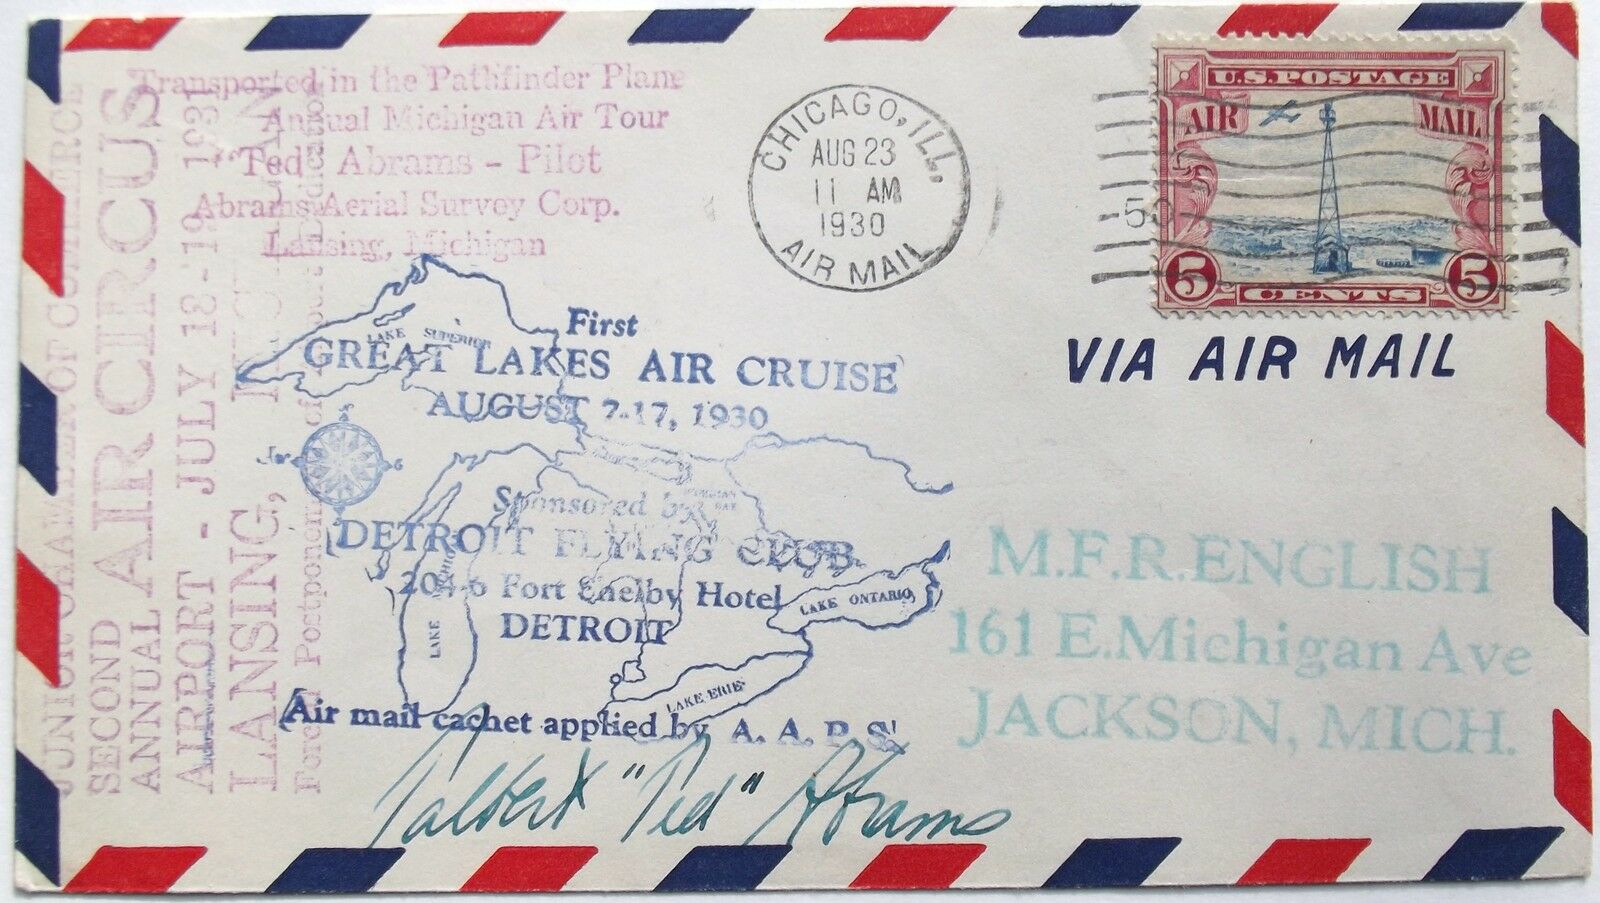 Transported in the Pathfinder Plane
Annual Michigan Air Tour
Ted Abrams - Pilot
Abrams Aerial Survey Corp.
Lansing, Michigan
JUNIOR CHAMBER OF COMMERCE
SECOND
ANNUAL
AIR CIRCUS
AIRPORT - JULY 18-19, 1931
LANSING,
Forced Postponement of
Dedication
CHICAGO, ILL.
AUG 23
11 AM
1930
AIR MAIL
U.S. POSTAGE
AIR MAIL
5 5
CENTS
VIA AIR MAIL
First
LAKE SUPERIOR
GREAT LAKES AIR CRUISE
AUGUST 7-17, 1930
Sponsored by
DETROIT FLYING CLUB
204-6 Fort Shelby Hotel
DETROIT
LAKE
LAKE ONTARIO
LAKE ERIE
Air mail cachet applied by A. A. P. S.
M.F.R.ENGLISH
161 E.Michigan Ave
JACKSON, MICH.
Talbert "Ted" Abrams